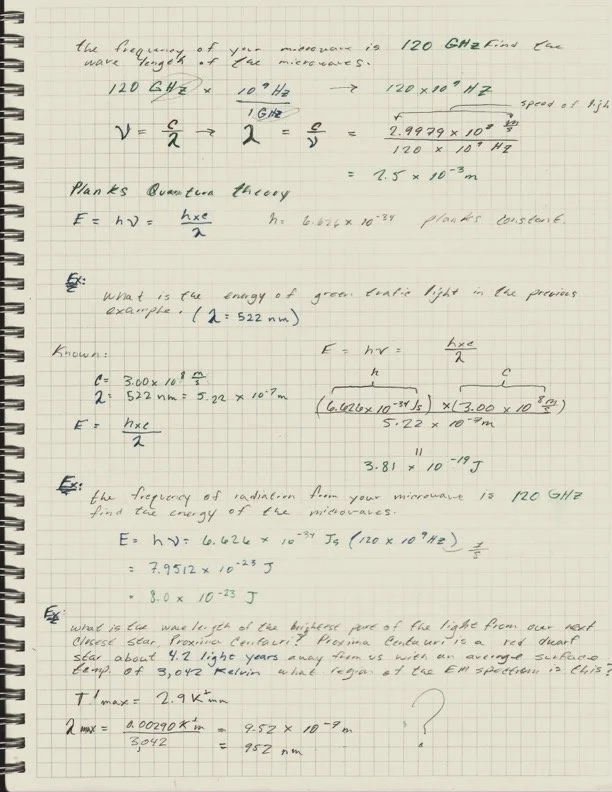 the frequency of your microwave is 120 GHz Find the
wave length of the microwaves.
120 GHz × 10⁹ Hz / 1 GHz → 120 × 10⁹ Hz
speed of light
ν = c/λ → λ = c/ν = 2.9979 × 10⁸ m/s / 120 × 10⁹ Hz
= 2.5 × 10⁻³ m
Planks Quantum theory
E = hν = hxc/λ h = 6.626 × 10⁻³⁴ planks constant.
Ex:
what is the energy of green trafic light in the previous
example. (λ = 522 nm)
Known: E = hν = hxc/λ
h c
C = 3.00 × 10⁸ m/s
λ = 522 nm = 5.22 × 10⁻⁷ m
(6.626 × 10⁻³⁴ Js) × (3.00 × 10⁸ m/s) / 5.22 × 10⁻⁷ m
E = hxc/λ
=
3.81 × 10⁻¹⁹ J
Ex:
the frequency of radiation from your microwave is 120 GHz
find the energy of the microwaves.
E = hν = 6.626 × 10⁻³⁴ Js (120 × 10⁹ Hz)
= 7.9512 × 10⁻²³ J
= 8.0 × 10⁻²³ J
Ex:
what is the wave length of the brightest part of the light from our next
closest star, Proxima Centauri? Proxima Centauri is a red dwarf
star about 4.2 light years away from us with an average surface
temp. of 3,042 Kelvin what region of the EM spectrum is this?
max = 2.9 K
λ max = 0.00290 K m / 3,042 = 9.52 × 10⁻⁹ m
= 952 nm
?